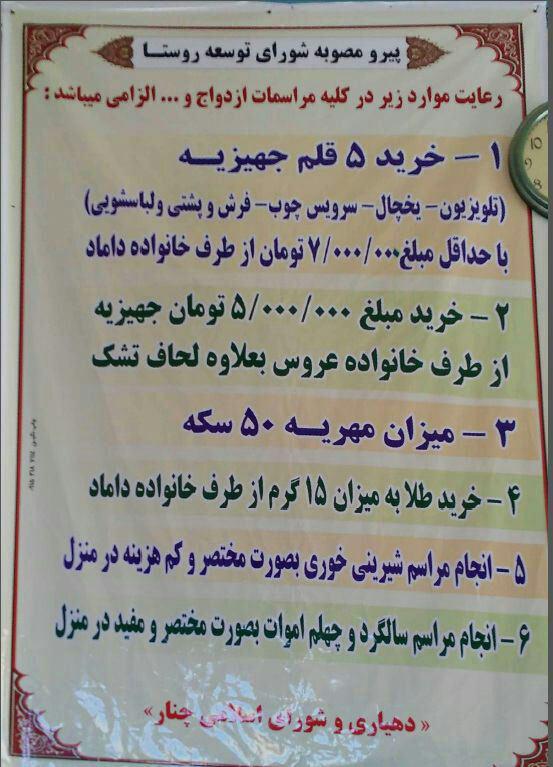 پیرو مصوبه شورای توسعه روستا
رعایت موارد زیر در کلیه مراسمات ازدواج و ... الزامی میباشد :
۱ - خرید ۵ قلم جهیزیه
(تلویزیون - یخچال - سرویس چوب - فرش و پشتی ولباسشویی)
با حداقل مبلغ ۷/۰۰۰/۰۰۰ تومان از طرف خانواده داماد
۲ - خرید مبلغ ۵/۰۰۰/۰۰۰ تومان جهیزیه
از طرف خانواده عروس بعلاوه لحاف تشک
۳ - میزان مهریه ۵۰ سکه
۴ - خرید طلا به میزان ۱۵ گرم از طرف خانواده داماد
۵ - انجام مراسم شیرینی خوری بصورت مختصر و کم هزینه در منزل
۶ - انجام مراسم سالگرد و چهلم اموات بصورت مختصر و مفید در منزل
« دهیاری و شورای اسلامی چنار»
10
9
8